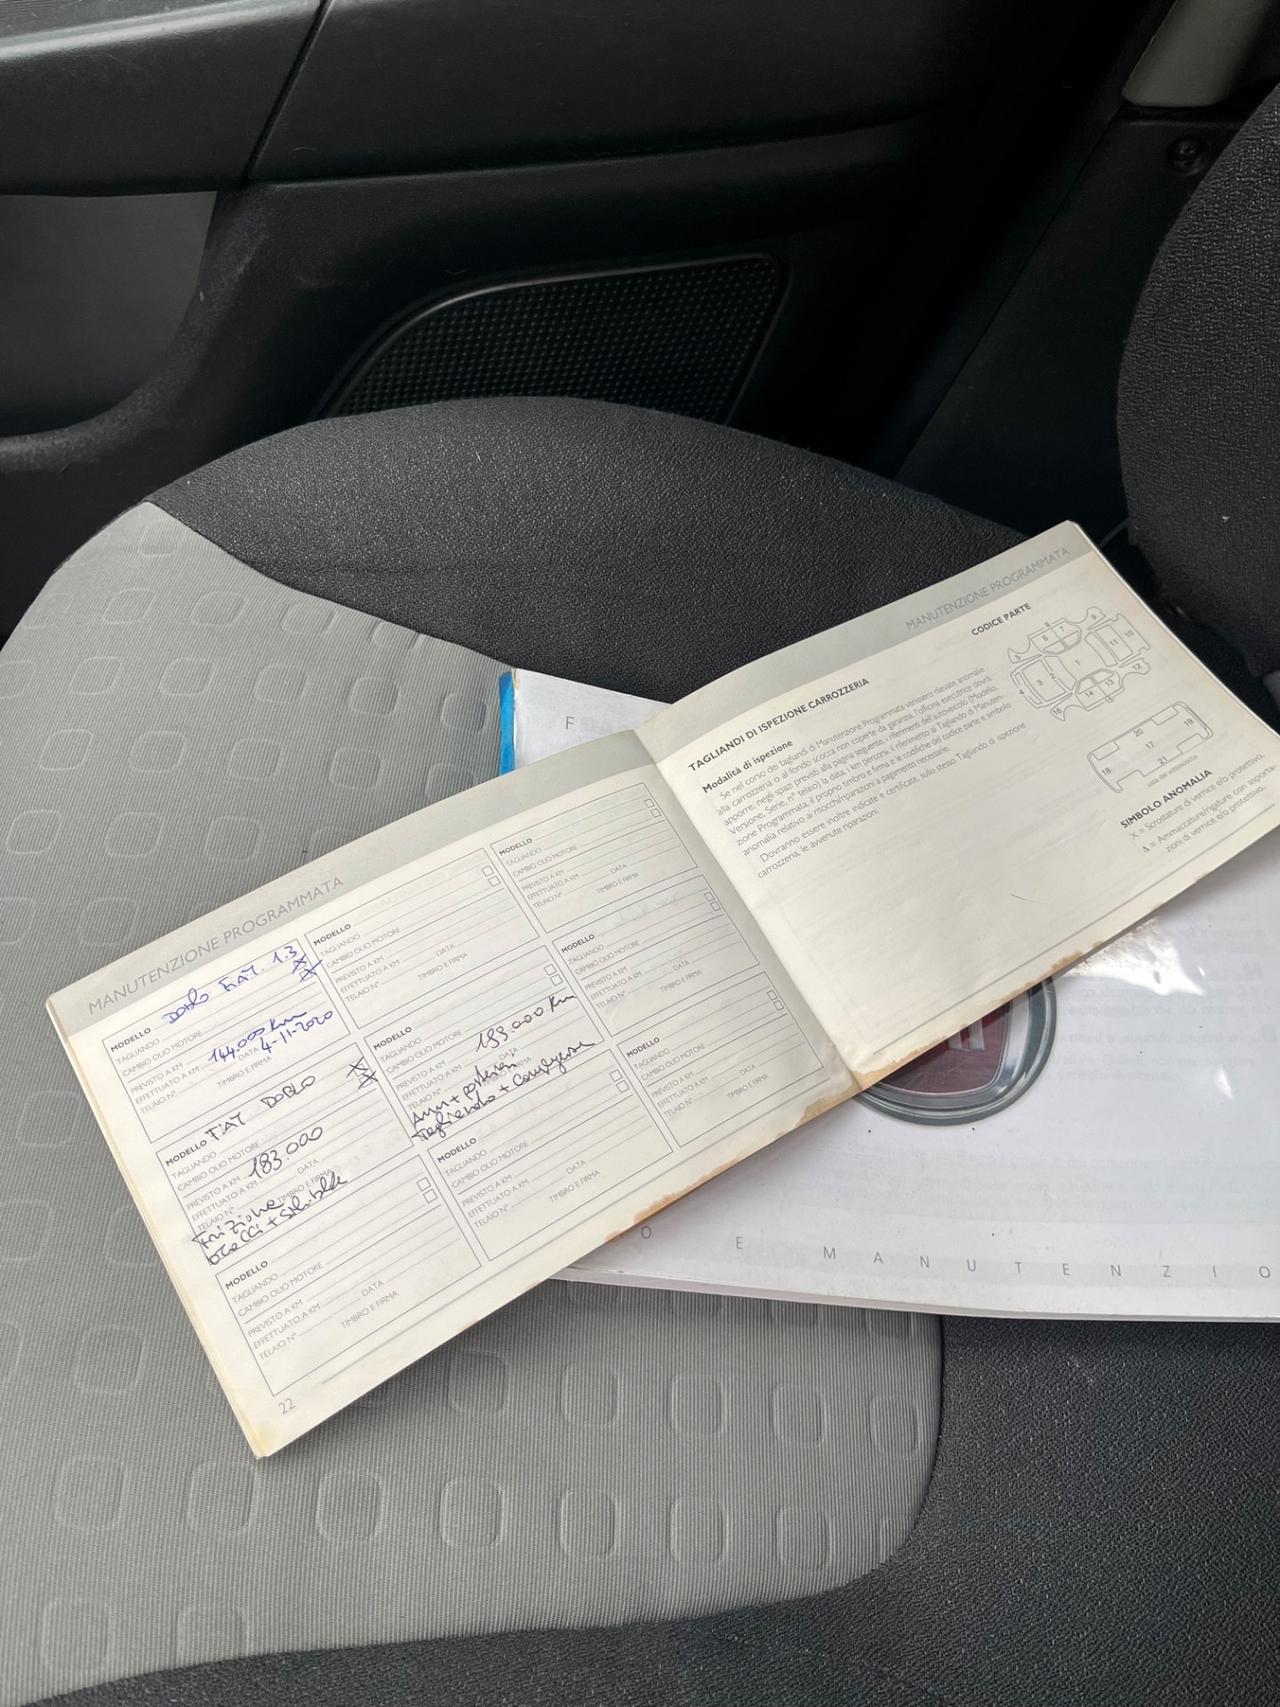 MANUTENZIONE PROGRAMMATA
MODELLO DOBLO FIAT 1.3
TAGLIANDO
CAMBIO OLIO MOTORE
XX
PREVISTO A KM
EFFETTUATO A KM 144.000 Km DATA 4-11-2020
TELAIO N° TIMBRO E FIRMA
MODELLO FIAT DOBLO
TAGLIANDO
CAMBIO OLIO MOTORE
XX
PREVISTO A KM 183.000
EFFETTUATO A KM DATA
TELAIO N° TIMBRO E FIRMA
Frizione
MODELLO
TAGLIANDO
CAMBIO OLIO MOTORE
PREVISTO A KM
EFFETTUATO A KM DATA
TELAIO N° TIMBRO E FIRMA
MODELLO
TAGLIANDO
CAMBIO OLIO MOTORE
PREVISTO A KM
EFFETTUATO A KM DATA
TELAIO N° TIMBRO E FIRMA
MODELLO
TAGLIANDO
CAMBIO OLIO MOTORE
PREVISTO A KM
EFFETTUATO A KM DATA
TELAIO N° TIMBRO E FIRMA
Tagliando +
MODELLO
TAGLIANDO
CAMBIO OLIO MOTORE
PREVISTO A KM
EFFETTUATO A KM DATA
TELAIO N° TIMBRO E FIRMA
MODELLO
TAGLIANDO
CAMBIO OLIO MOTORE
PREVISTO A KM
EFFETTUATO A KM DATA
TELAIO N° TIMBRO E FIRMA
MODELLO
TAGLIANDO
CAMBIO OLIO MOTORE
PREVISTO A KM
EFFETTUATO A KM DATA
TELAIO N° TIMBRO E FIRMA
MODELLO
TAGLIANDO
CAMBIO OLIO MOTORE
PREVISTO A KM
EFFETTUATO A KM DATA
TELAIO N° TIMBRO E FIRMA
22
MANUTENZIONE PROGRAMMATA
TAGLIANDI DI ISPEZIONE CARROZZERIA
Modalità di ispezione
Se nel corso dei tagliandi di Manutenzione Programmata venissero rilevate anomalie
alla carrozzeria o al fondo scocca non coperte da garanzia, l'officina esecutrice dovrà
apporre, negli spazi previsti alla pagina seguente, i riferimenti dell'autoveicolo (Modello,
Versione, Serie, n° telaio) la data, i km percorsi, il riferimento al Tagliando di Manuten-
zione Programmata, il proprio timbro e firma e le codifiche del codice parte e simbolo
anomalia relativo ai ritocchi/riparazioni a pagamento necessarie.
Dovranno essere inoltre indicate e certificate, sullo stesso Tagliando di ispezione
carrozzeria, le avvenute riparazioni.
CODICE PARTE
5 6 7 8 9
4 3 2 1 11 10
16 14 13 15 12
20
18 17 19
21
SIMBOLO ANOMALIA
X = Scrostature di vernice e/o protettivo.
Δ = Ammaccature/rigature con asporta-
zioni di vernice e/o protettivo.
F
O E MANUTENZIO